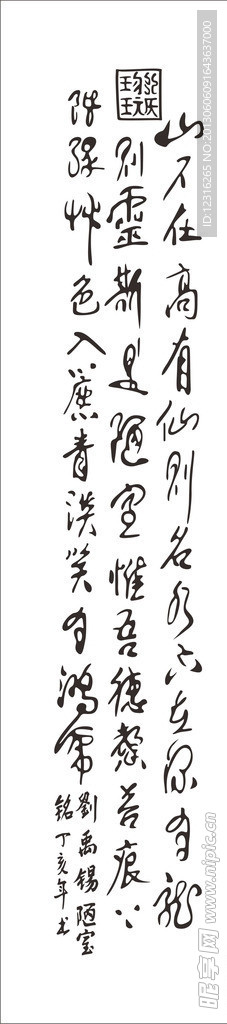 山不在高有仙则名水不在深有龙
则靈斯是陋室惟吾德馨苔痕上
阶绿艸色入簾青谈笑有鸿儒
劉禹锡陋室
铭丁亥年书
ID:12316265 NO:20130606091643637000
昵享网 www.nipic.cn